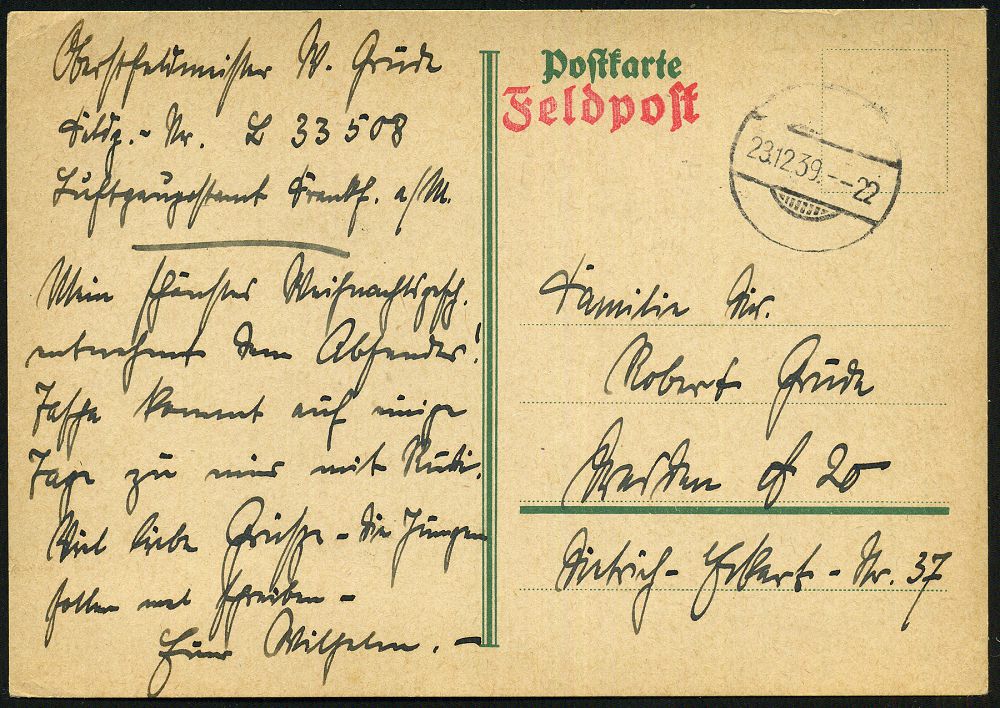 Oberstfeldmeister W. Grude
Feldp.- Nr. L 33508
Luftgaupostamt Frankf. a/M.
Mein schönstes Weihnachtsgesch.
entnehmt dem Absender!
kommt auf einige
Tage zu mir mit Rudi.
Viel liebe Grüsse - die Jungen
sollen mal schreiben -
Euer Wilhelm. -
Postkarte
Feldpost
23.12.39.--22
Familie Dir.
Robert Grude
Dresden A 20
Dietrich-Eckart-Str. 37